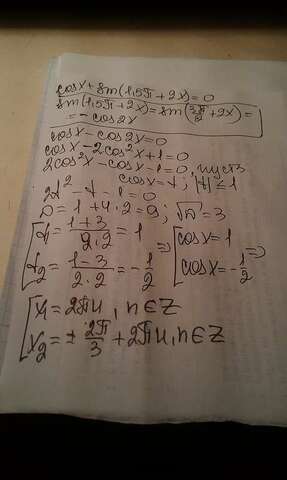 cosx + sin(1,5π + 2x) = 0
sin(1,5π + 2x) = sin(3π/2 + 2x) =
= - cos2x
cosx - cos2x = 0
cosx - 2cos²x + 1 = 0
2cos²x - cosx - 1 = 0, пусть
cosx = t; |t| ≤ 1
2t² - t - 1 = 0
D = 1 + 4·2 = 9; √D = 3
[t₁ = (1+3)/(2·2) = 1 => [cosx = 1 =>
[t₂ = (1-3)/(2·2) = -1/2 [cosx = -1/2
[x₁ = 2πn, n∈Z
[x₂ = ± 2π/3 + 2πn, n∈Z